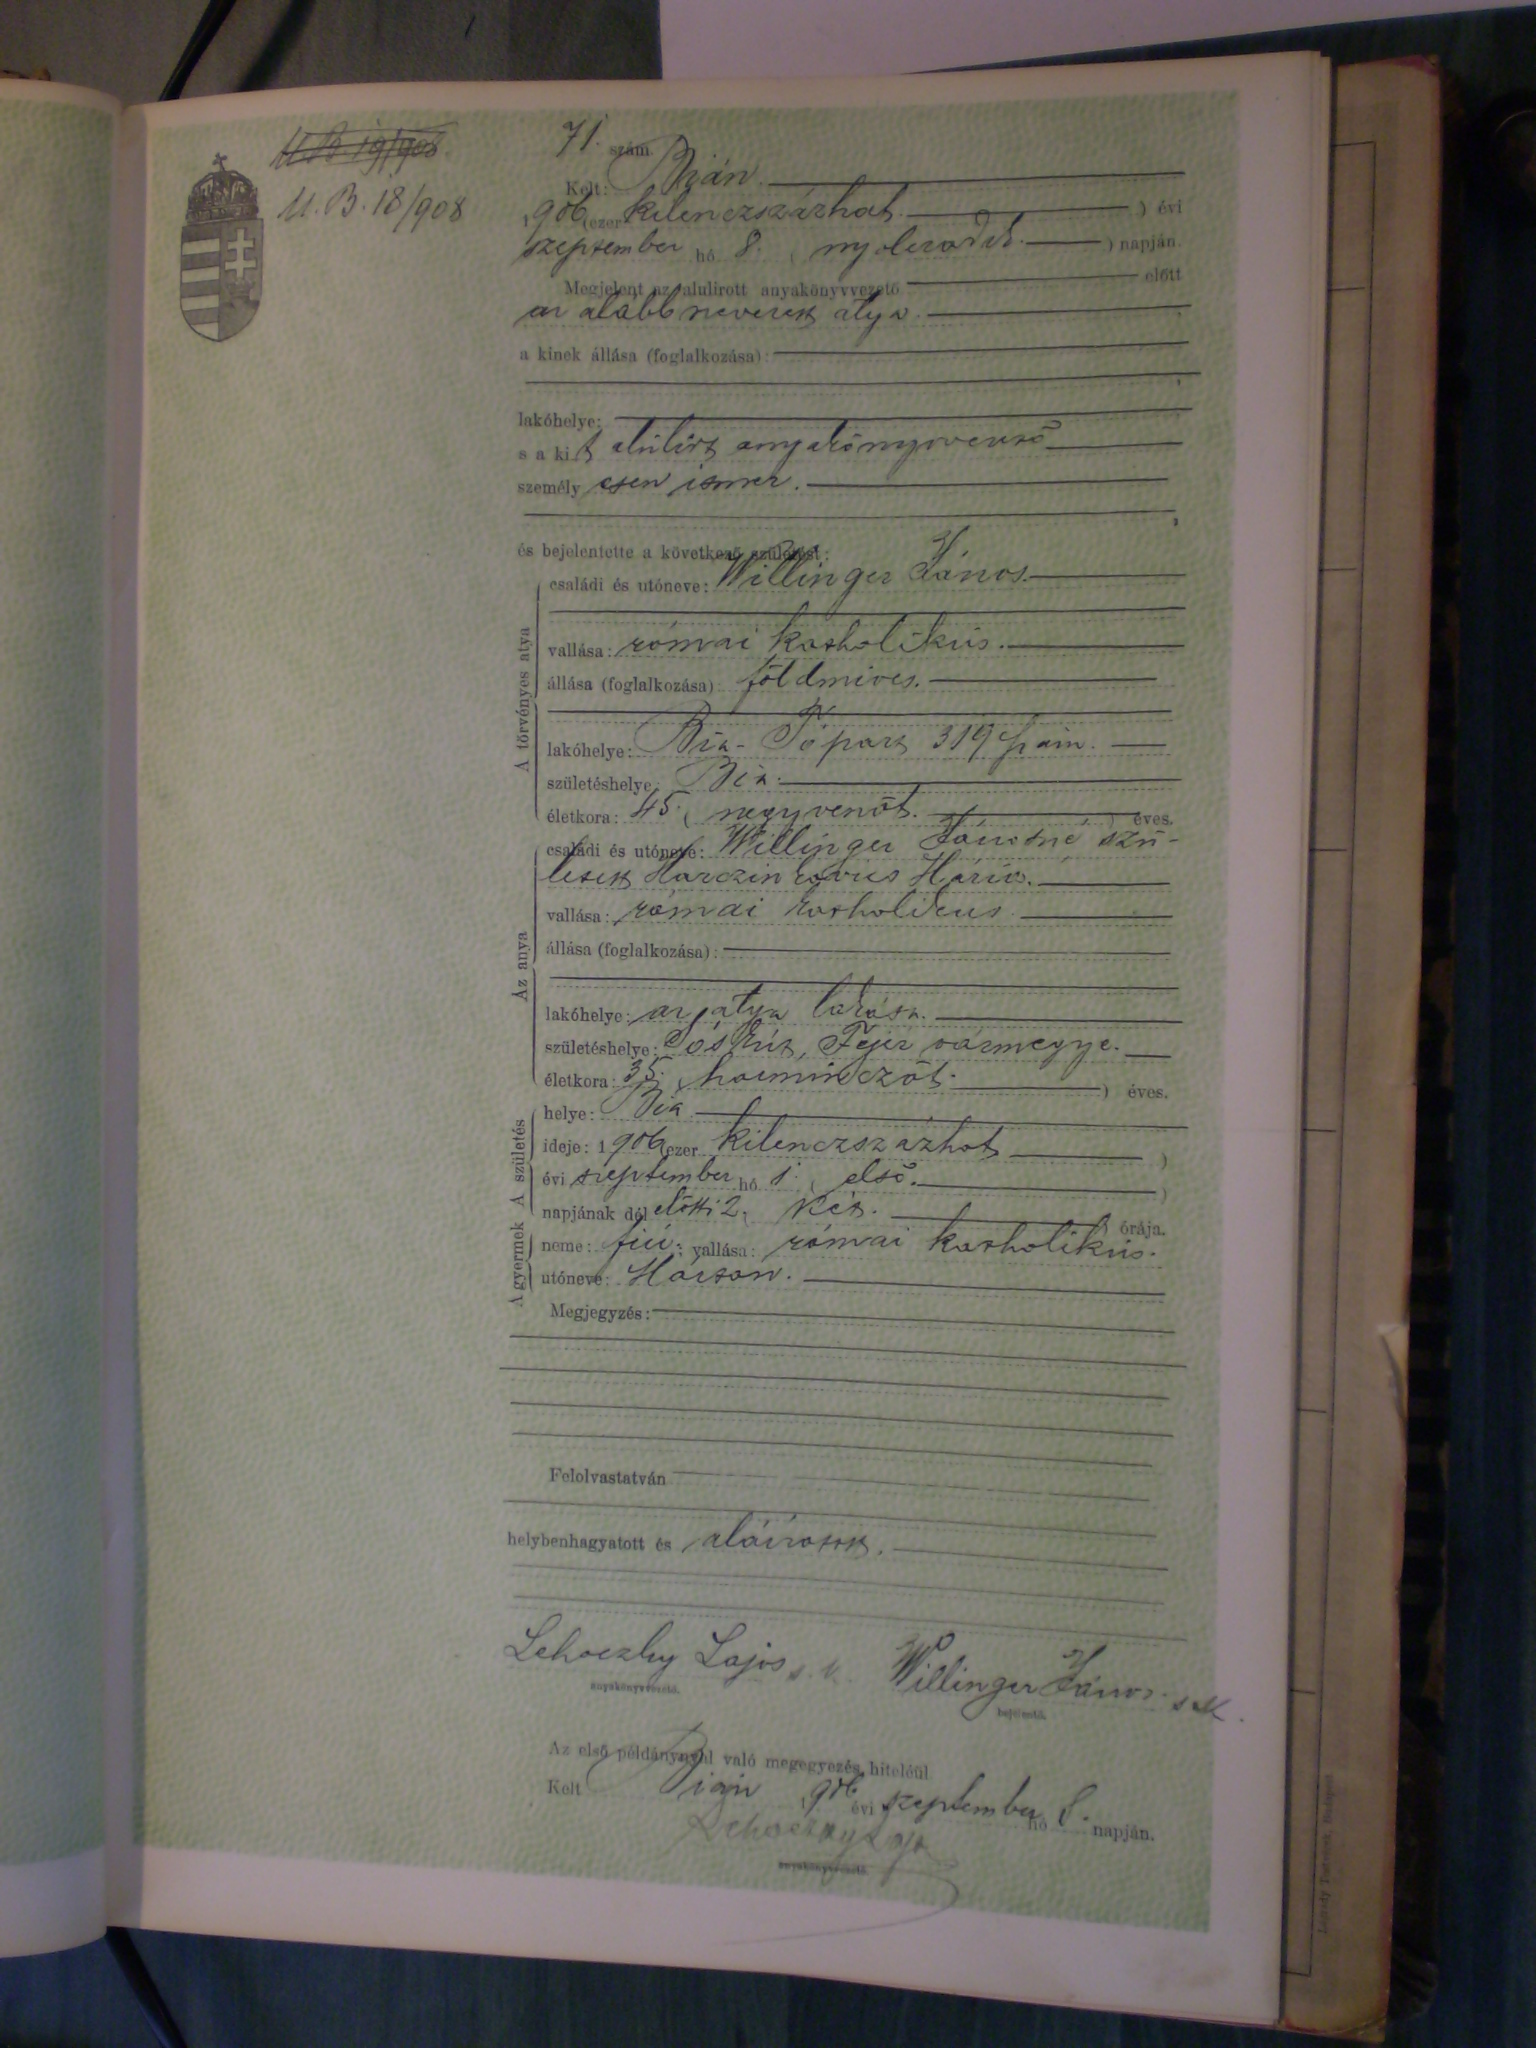 U. B. 19/908
U. B. 18/908
71. szám.
Kelt: Bián.
1906 (ezer kilenczszázhat. ) évi
szeptember hó 8. ( nyolczadik. ) napján.
Megjelent az alulirott anyakönyvvezető előtt
az alább nevezett atya.
a kinek állása (foglalkozása):
lakóhelye:
s a kit alulirt anyakönyvvezető
személy esen ismer.
és bejelentette a következő születést:
A törvényes atya
családi és utóneve: Willinger János.
vallása: római katholikus.
állása (foglalkozása): földmives.
lakóhelye: Bia- Tópart 319 szám.
születéshelye: Bia.
életkora: 45. ( negyvenöt. ) éves.
Az anya
családi és utóneve: Willinger Jánosné szü-
letett Marczinkovics Mária.
vallása: római katholikus.
állása (foglalkozása):
lakóhelye: az atya lakása.
születéshelye: Sóskút, Fejér vármegye.
életkora: 35. ( harminczöt. ) éves.
A születés
helye: Bia.
ideje: 1906 (ezer kilenczszázhat )
évi szeptember hó 1. ( első. )
napjának dél előtti 2. ( két. ) órája.
A gyermek
neme: fiú; vallása: római katholikus.
utóneve: Márton.
Megjegyzés:
Felolvastatván
helybenhagyatott és aláiratott.
Lehoczky Lajos s. k. Willinger János. s. k.
anyakönyvvezető. bejelentő.
Az első példánynyal való megegyezés hiteléül
Kelt Bián 1906 évi szeptember hó 8. napján.
Lehoczky Lajos
anyakönyvvezető.